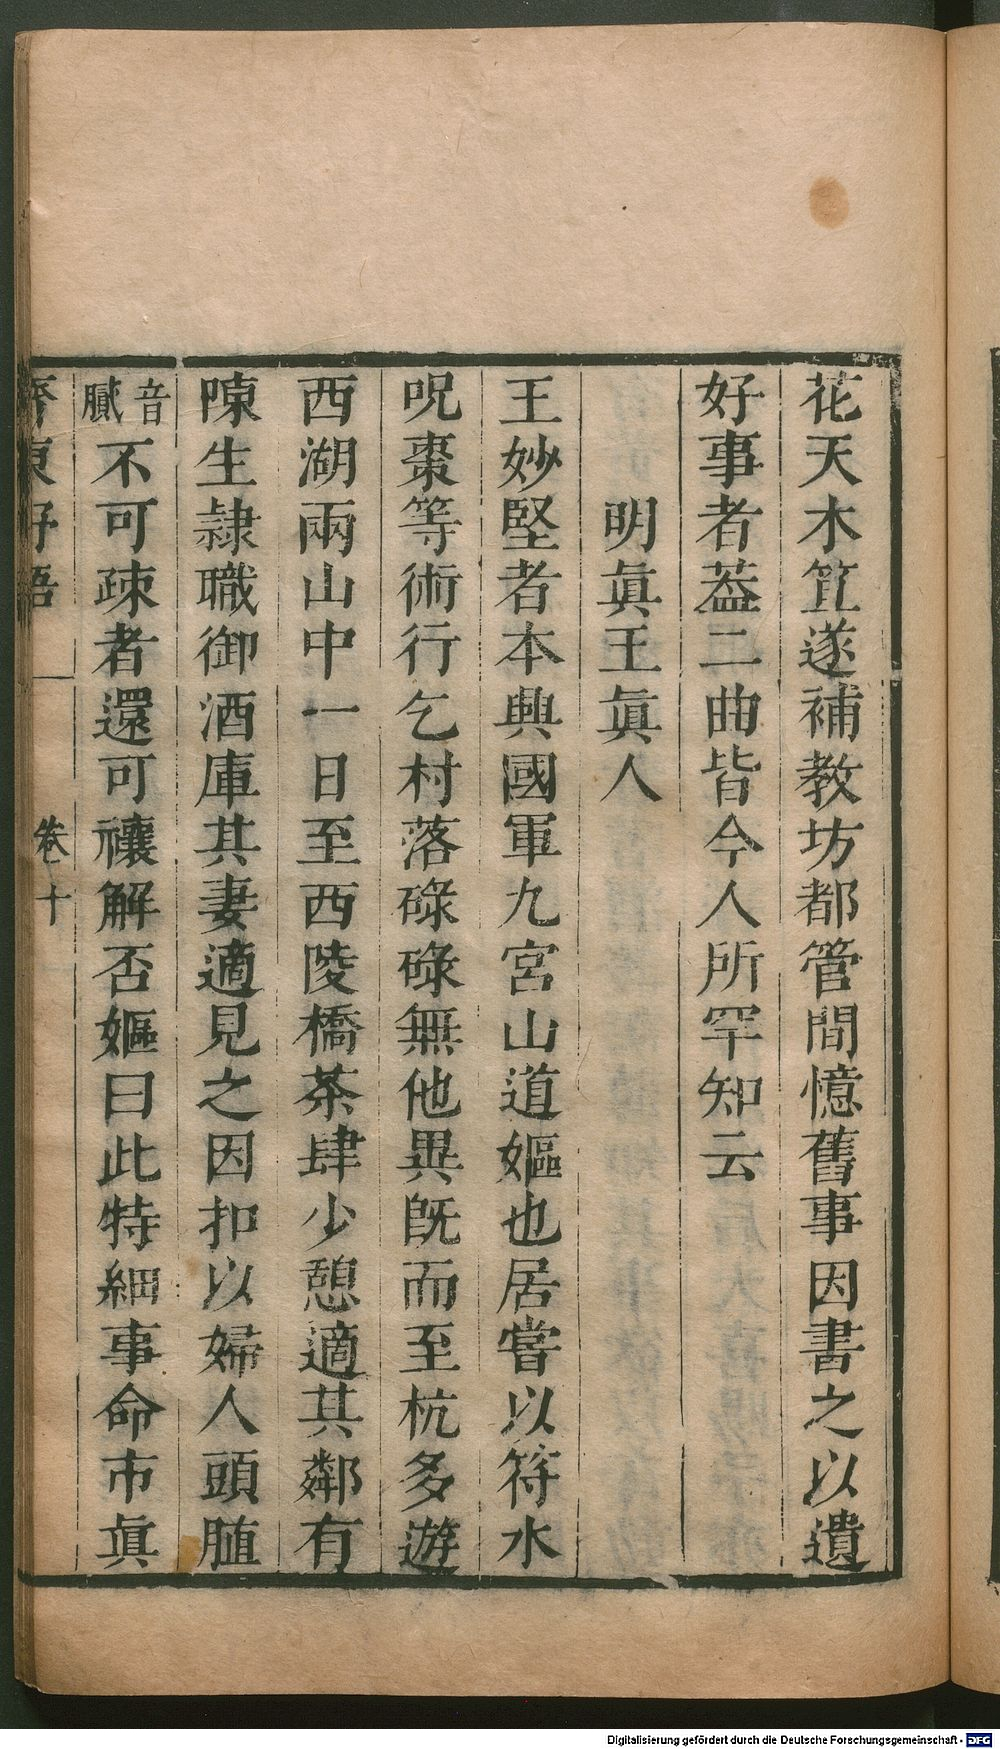 花天木笡遂補教坊都管間憶舊事因書之以遺
好事者葢二曲皆今人所罕知云
明眞王眞人
王妙堅者本興國軍九宮山道嫗也居嘗以符水
呪棗等術行乞村落碌碌無他異旣而至杭多遊
西湖兩山中一日至西陵橋茶肆少憩適其鄰有
陳生隷職御酒庫其妻適見之因扣以婦人頭䐈
音
膱不可疎者還可禳解否嫗曰此特細事命市眞
齊東野語 卷十
Digitalisierung gefördert durch die Deutsche Forschungsgemeinschaft - DFG